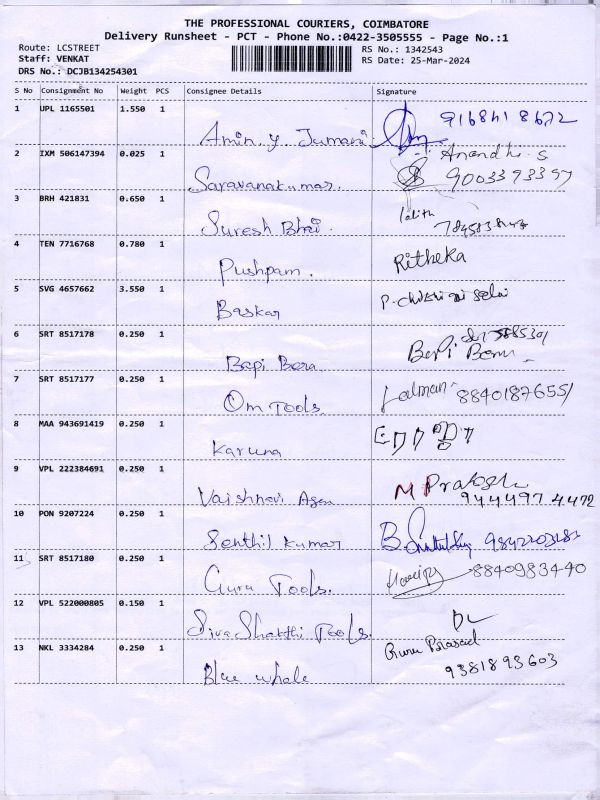 THE PROFESSIONAL COURIERS, COIMBATORE
Delivery Runsheet - PCT - Phone No.:0422-3505555 - Page No.:1
Route: LCSTREET
Staff: VENKAT
DRS No.: DCJB134254301
RS No.: 1342543
RS Date: 25-Mar-2024
S No Consignment No Weight PCS Consignee Details Signature
1 UPL 1165501 1.550 1 Amin. y. Jumani. 9168418672
2 IXM 506147394 0.025 1 Saravanakumar. Anandhi. S
9003393397
3 BRH 421831 0.650 1 Suresh Bhai. lalith
4 TEN 7716768 0.780 1 Pushpam. Ritheka
5 SVG 4657662 3.550 1 Baskar
6 SRT 8517178 0.250 1 Bapi Bera
7 SRT 8517177 0.250 1 Om Tools. 8840187655
8 MAA 943691419 0.250 1 Karuna
9 VPL 222384691 0.250 1 Vaishnavi Agen M Prakash
944497 4472
10 PON 9207224 0.250 1 Senthil Kumar
11 SRT 8517180 0.250 1 Guru Tools. 8840983440
12 VPL 522000805 0.150 1 Siva Shakthi Tools.
13 NKL 3334284 0.250 1 Blue whale Guru Prasad
9381893603